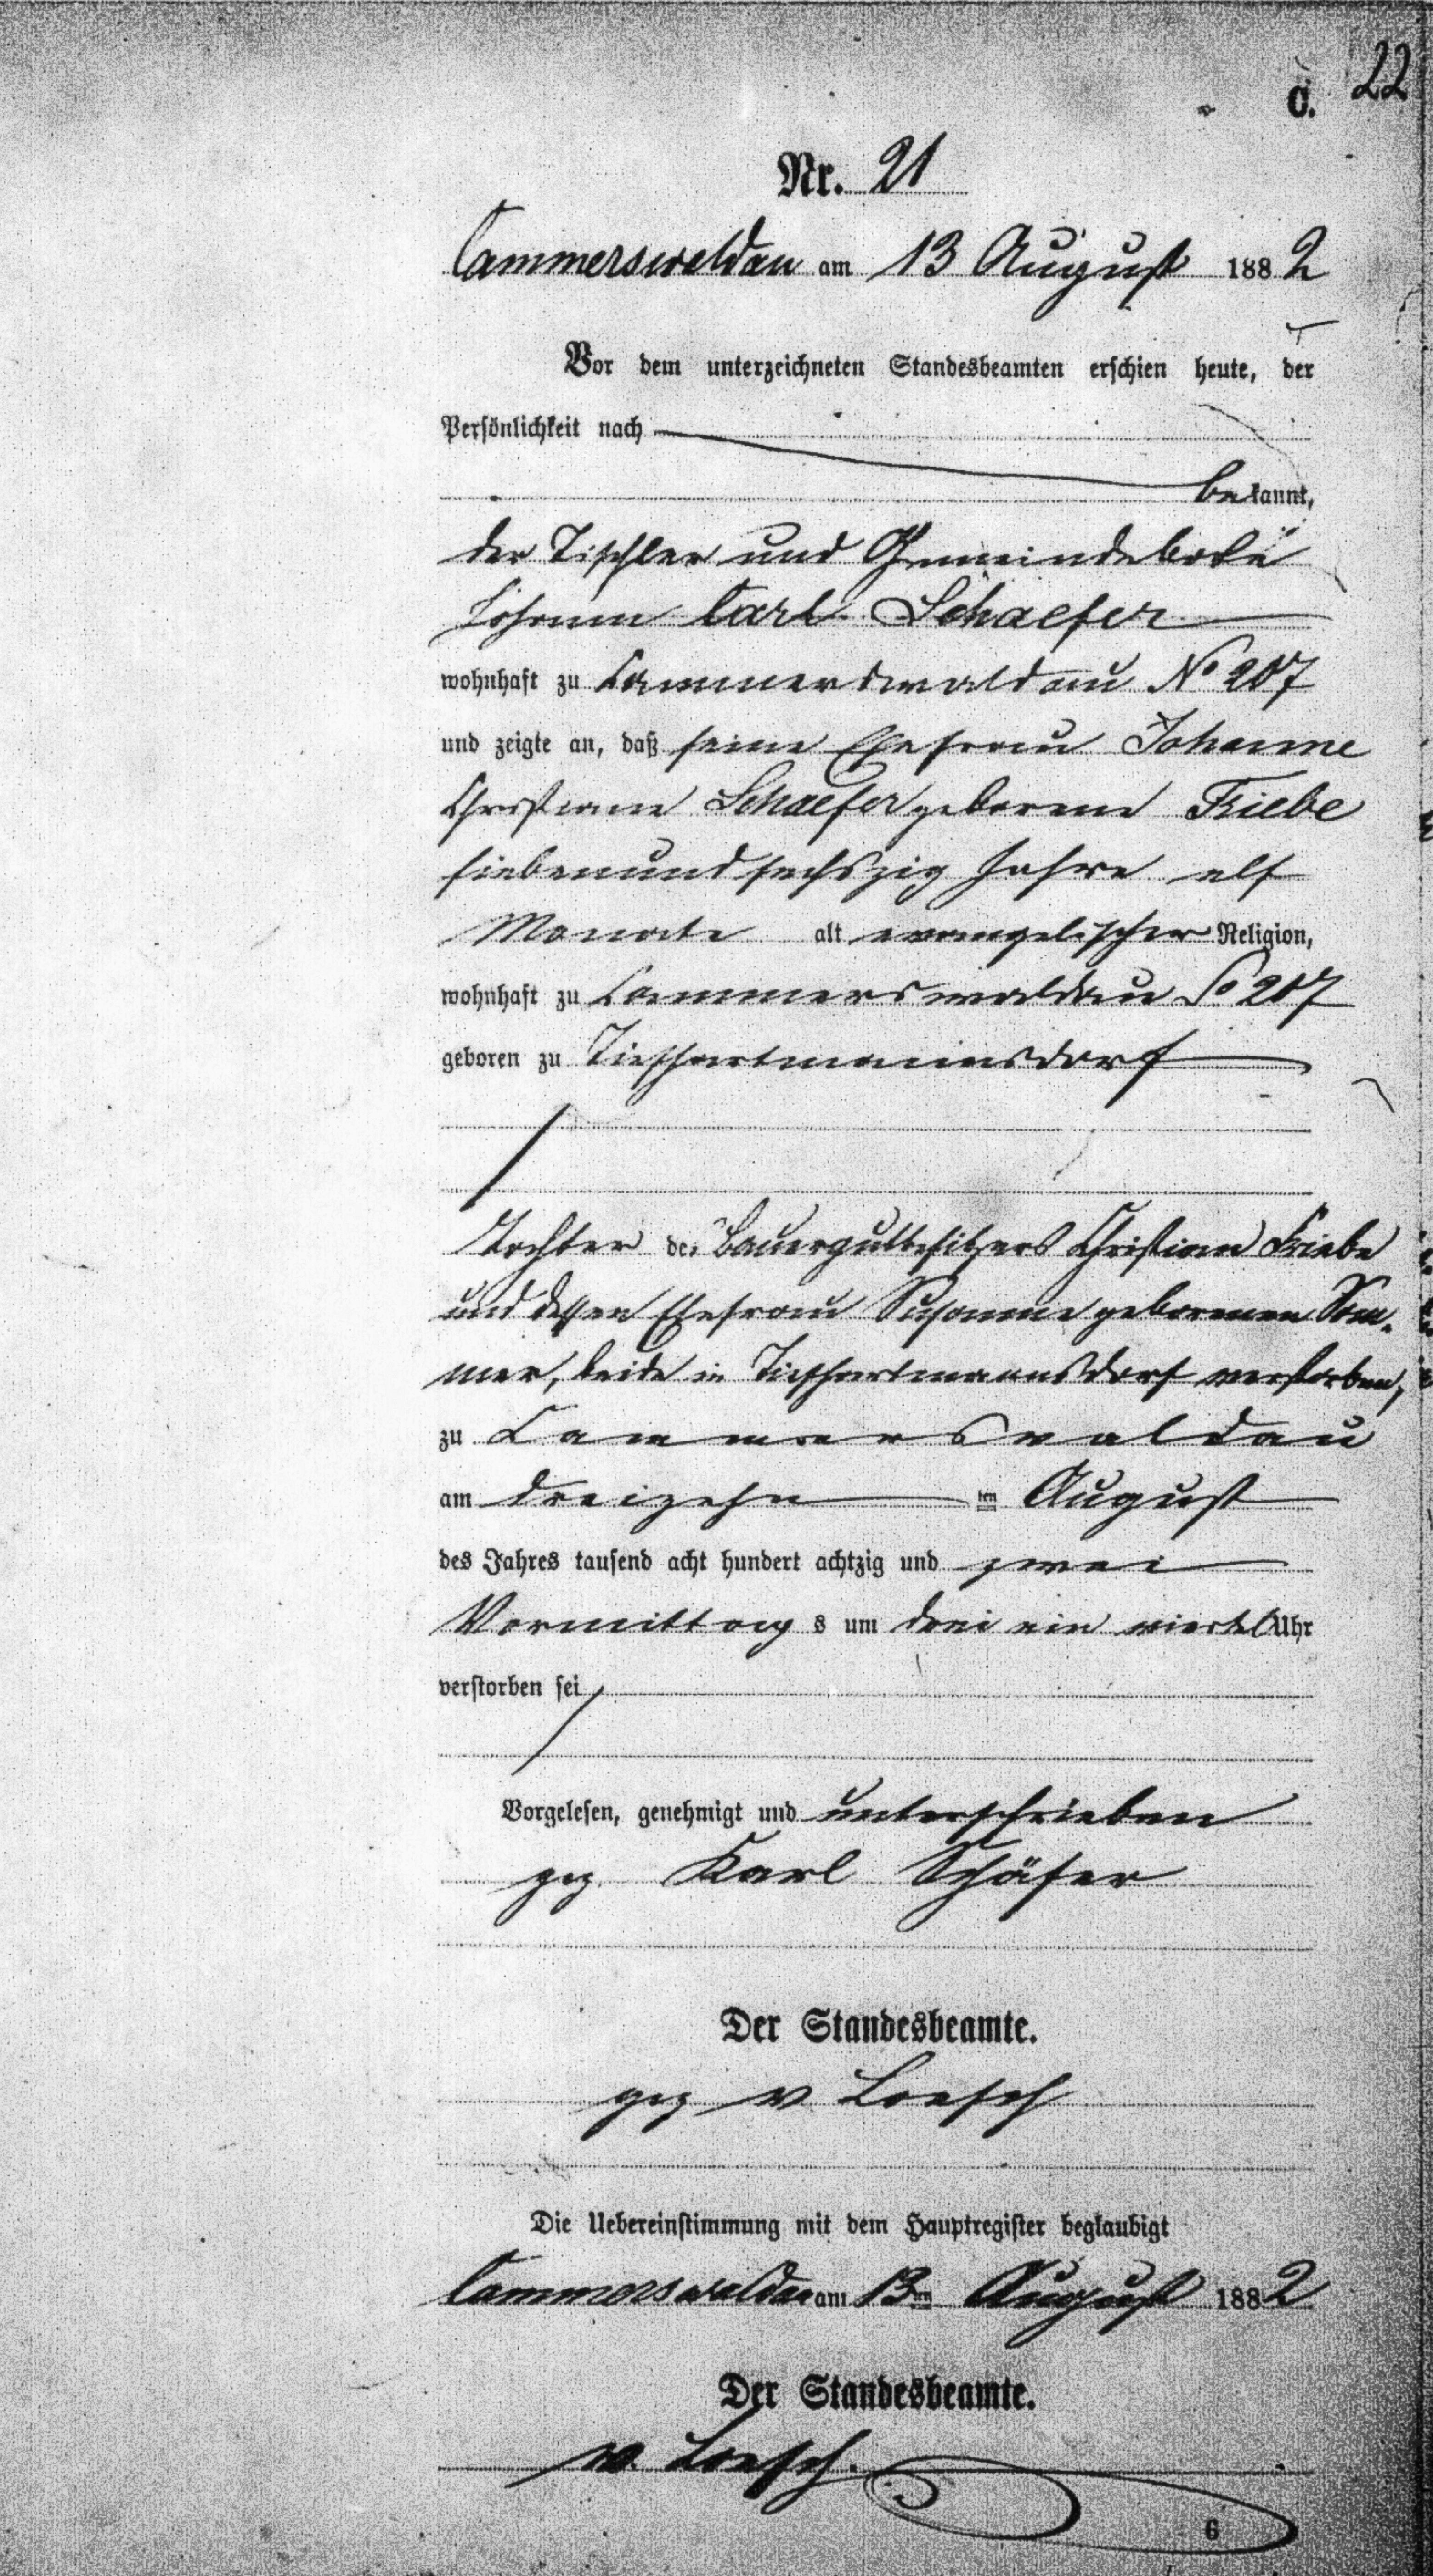 C. 22
Nr. 21
Cammerswaldau am 13 August 1882
Vor dem unterzeichneten Standesbeamten erschien heute, der
Persönlichkeit nach
bekannt,
der Tischler und Gemeindebote
Johann Carl Schaefer
wohnhaft zu Cammerswaldau No 207
und zeigte an, daß seine Ehefrau Johanne
Christiane Schaefer geborene Friebe
siebenundsechszig Jahre elf
Monate alt evangelischer Religion,
wohnhaft zu Cammerswaldau No 207
geboren zu Tiefhartmannsdorf
Tochter des Bauergutbesitzers Christian Friebe
und dessen Ehefrau Susanne geborenen Som-
mer, beide in Tiefhartmannsdorf verstorben,
zu Cammerswaldau
am dreizehn ten August
des Jahres tausend acht hundert achtzig und zwei
Vormittags um drei ein viertel Uhr
verstorben sei
Vorgelesen, genehmigt und unterschrieben
gez. Karl Schäfer
Der Standesbeamte.
gez v Loesch
Die Uebereinstimmung mit dem Hauptregister beglaubigt
Cammerswaldau am 13ten August 1882
Der Standesbeamte.
v. Loesch.
6